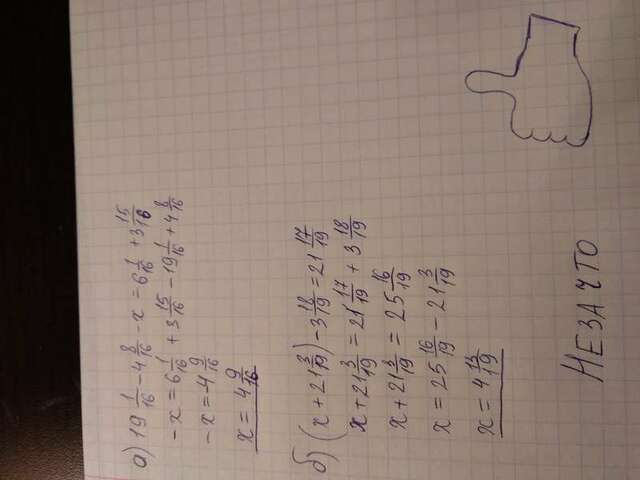 а) 19 1/16 - 4 8/16 - x = 6 1/16 + 3 15/16
- x = 6 1/16 + 3 15/16 - 19 1/16 + 4 8/16
- x = -4 9/16
x = 4 9/16
б) (x + 21 3/19) - 3 18/19 = 21 17/19
x + 21 3/19 = 21 17/19 + 3 18/19
x + 21 3/19 = 25 16/19
x = 25 16/19 - 21 3/19
x = 4 13/19
НЕЗАЧТО